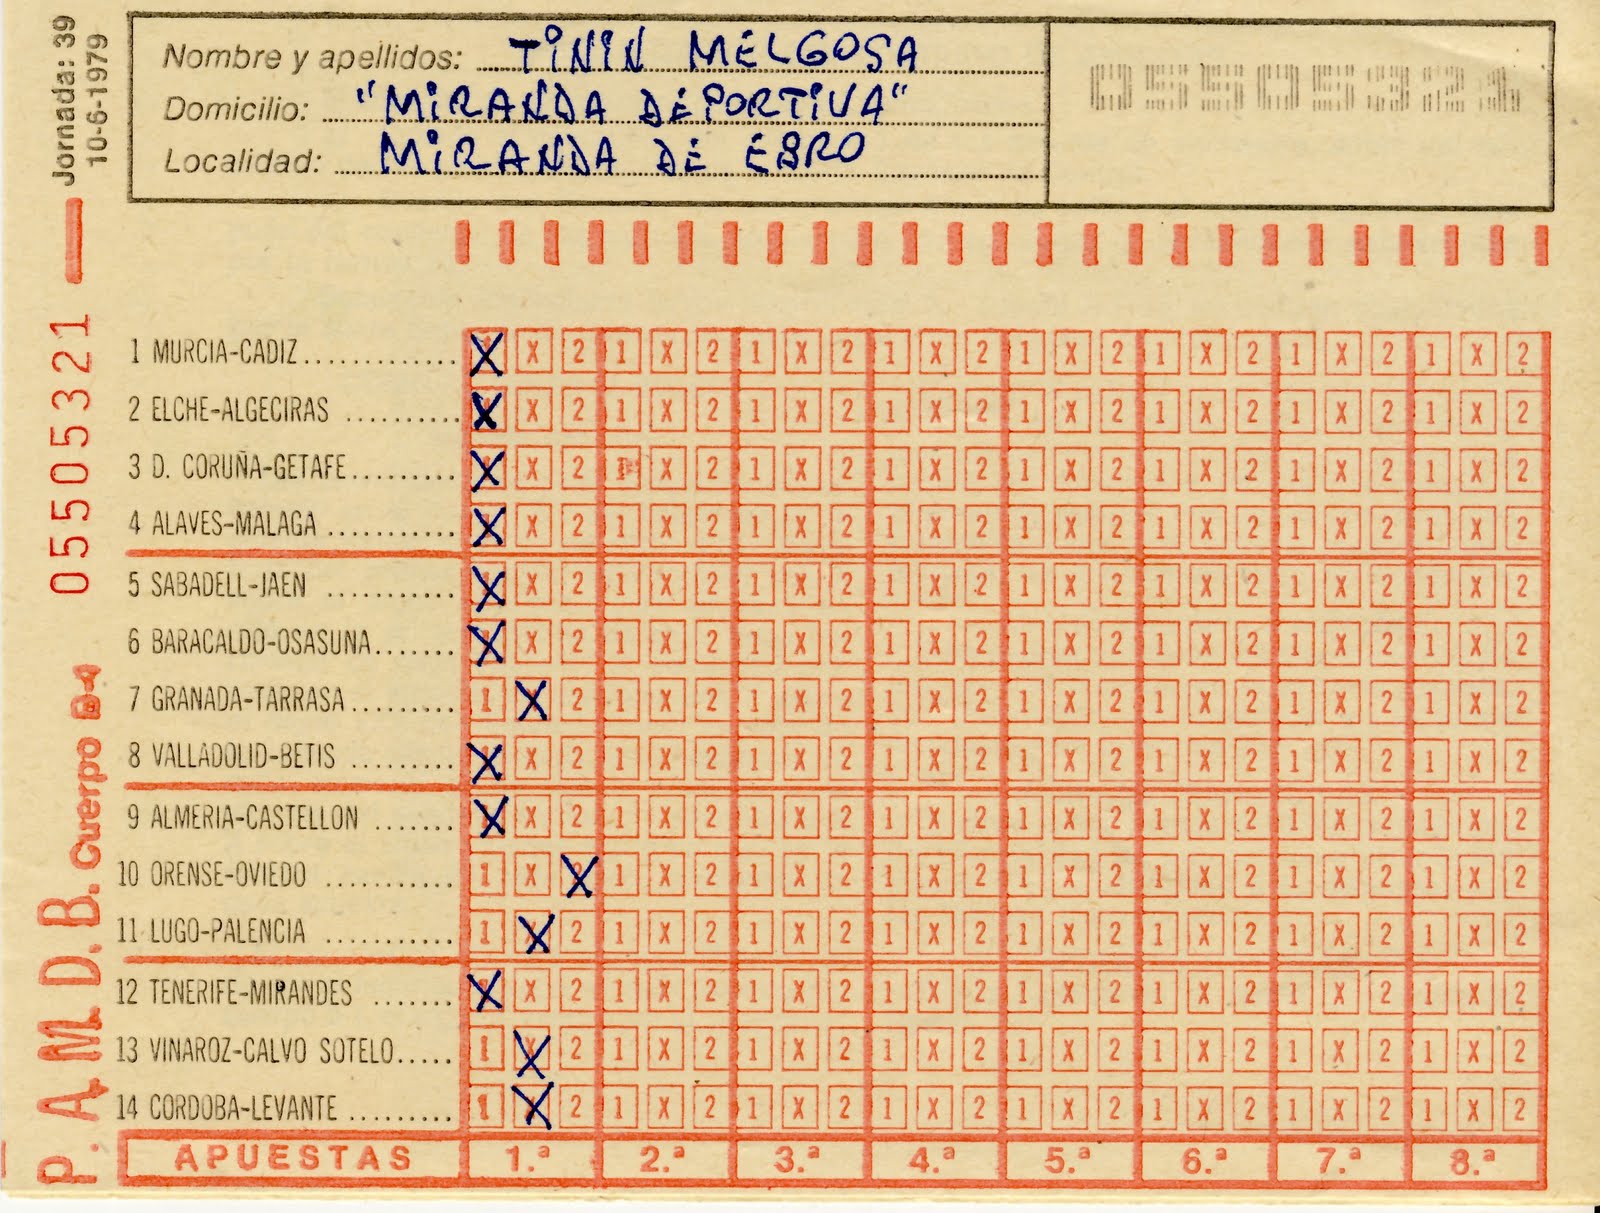 Jornada: 39
10-6-1979
Nombre y apellidos: TININ MELGOSA
Domicilio: "MIRANDA DEPORTIVA"
Localidad: MIRANDA DE EBRO
05505321
05505321
P. A. M. D. B. Cuerpo
1 MURCIA-CADIZ............. 1 X 2 1 X 2 1 X 2 1 X 2 1 X 2 1 X 2 1 X 2 1 X 2
2 ELCHE-ALGECIRAS .......... 1 X 2 1 X 2 1 X 2 1 X 2 1 X 2 1 X 2 1 X 2 1 X 2
3 D. CORUÑA-GETAFE......... X X 2 1 X 2 1 X 2 1 X 2 1 X 2 1 X 2 1 X 2 1 X 2
4 ALAVES-MALAGA ........... X X 2 1 X 2 1 X 2 1 X 2 1 X 2 1 X 2 1 X 2 1 X 2
5 SABADELL-JAEN ........... X X 2 1 X 2 1 X 2 1 X 2 1 X 2 1 X 2 1 X 2 1 X 2
6 BARACALDO-OSASUNA....... X X 2 1 X 2 1 X 2 1 X 2 1 X 2 1 X 2 1 X 2 1 X 2
7 GRANADA-TARRASA......... 1 X 2 1 X 2 1 X 2 1 X 2 1 X 2 1 X 2 1 X 2 1 X 2
8 VALLADOLID-BETIS ......... X X 2 1 X 2 1 X 2 1 X 2 1 X 2 1 X 2 1 X 2 1 X 2
9 ALMERIA-CASTELLON ....... X X 2 1 X 2 1 X 2 1 X 2 1 X 2 1 X 2 1 X 2 1 X 2
10 ORENSE-OVIEDO ........... 1 X X 1 X 2 1 X 2 1 X 2 1 X 2 1 X 2 1 X 2 1 X 2
11 LUGO-PALENCIA ........... 1 X 2 1 X 2 1 X 2 1 X 2 1 X 2 1 X 2 1 X 2 1 X 2
12 TENERIFE-MIRANDES ....... X X 2 1 X 2 1 X 2 1 X 2 1 X 2 1 X 2 1 X 2 1 X 2
13 VINAROZ-CALVO SOTELO..... 1 X 2 1 X 2 1 X 2 1 X 2 1 X 2 1 X 2 1 X 2 1 X 2
14 CORDOBA-LEVANTE ......... 1 X 2 1 X 2 1 X 2 1 X 2 1 X 2 1 X 2 1 X 2 1 X 2
APUESTAS 1.ª 2.ª 3.ª 4.ª 5.ª 6.ª 7.ª 8.ª